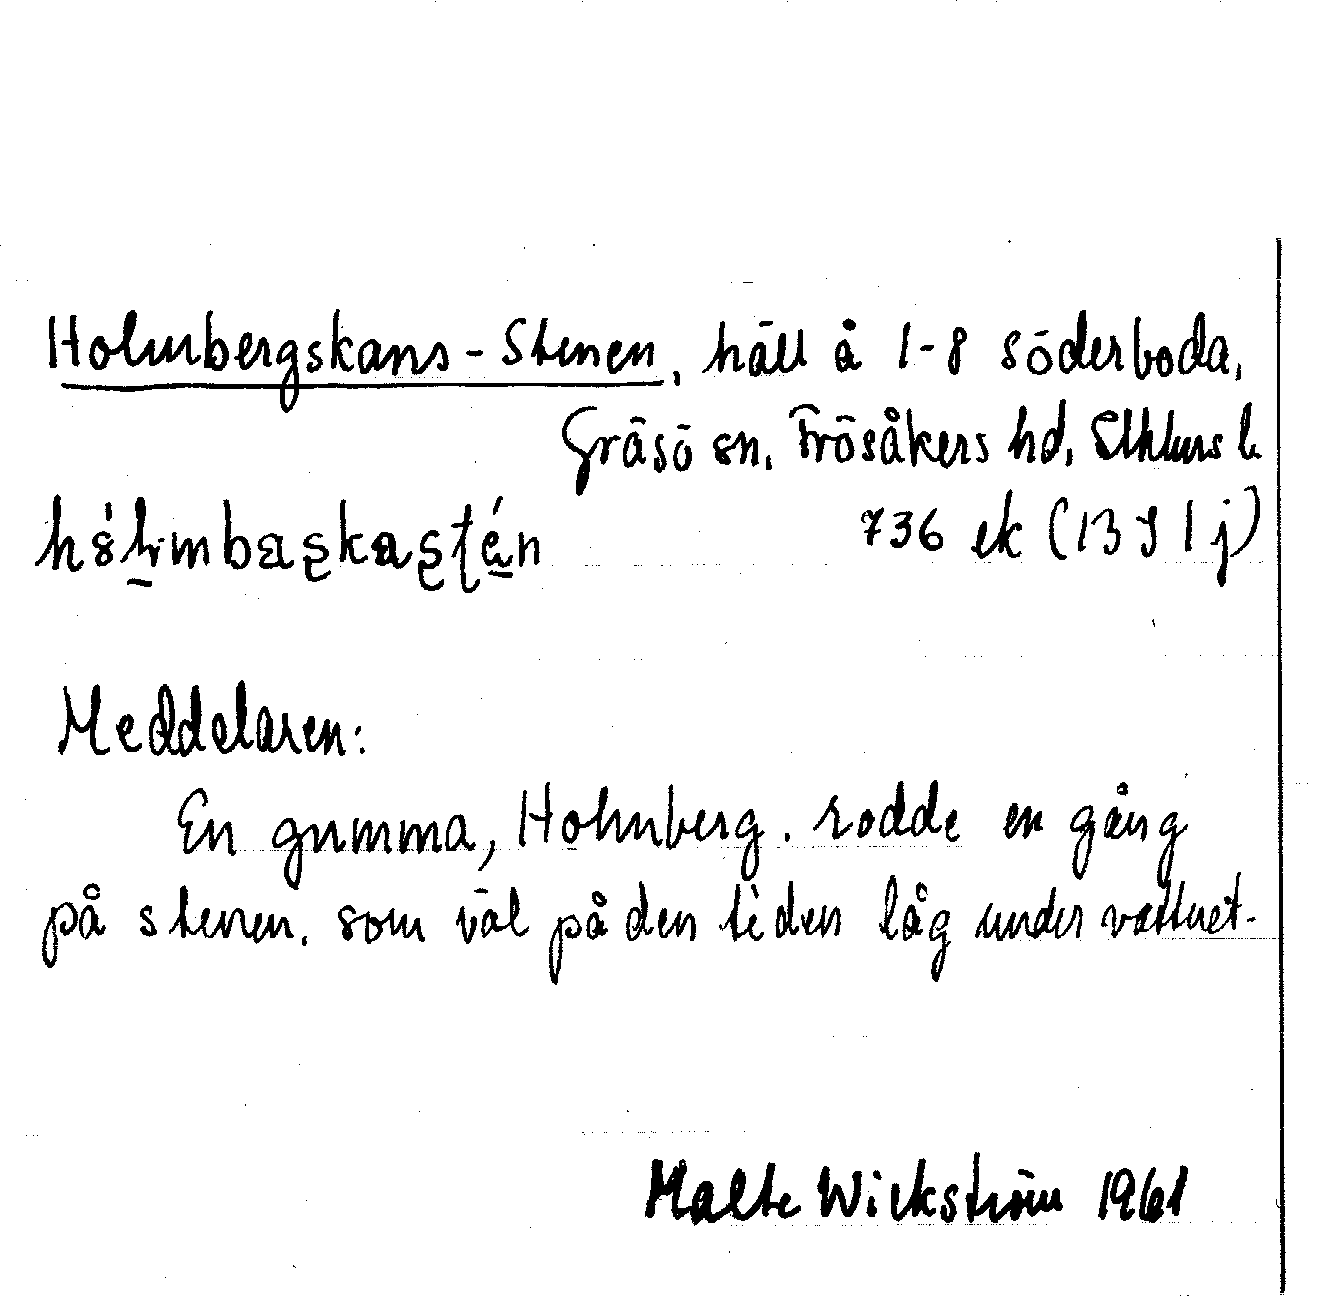 Holmbergskans-Stenen, häll å 1-8 Söderboda,
Gräsö sn, Frösåkers hd, Sthlms l.
736 ek (13 I 1 j)
Meddelaren:
En gumma, Holmberg. rodde en gång
på stenen, som väl på den tiden låg under vattnet.
Malte Wickström 1961